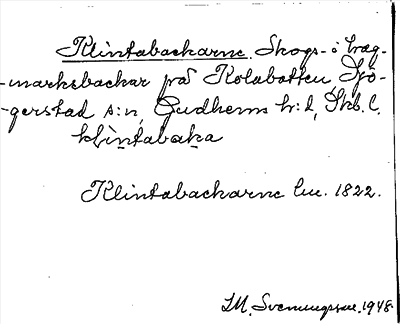 Klintabackarne. Skogs- o. hag-
-marksbackar på Kolabotten, Sjö-
-gerstad s:n, Gudhems h:d, Skb. l.
klintabaka
Klintabackarne lm. 1822.
I.M. Svenungsson. 1948.